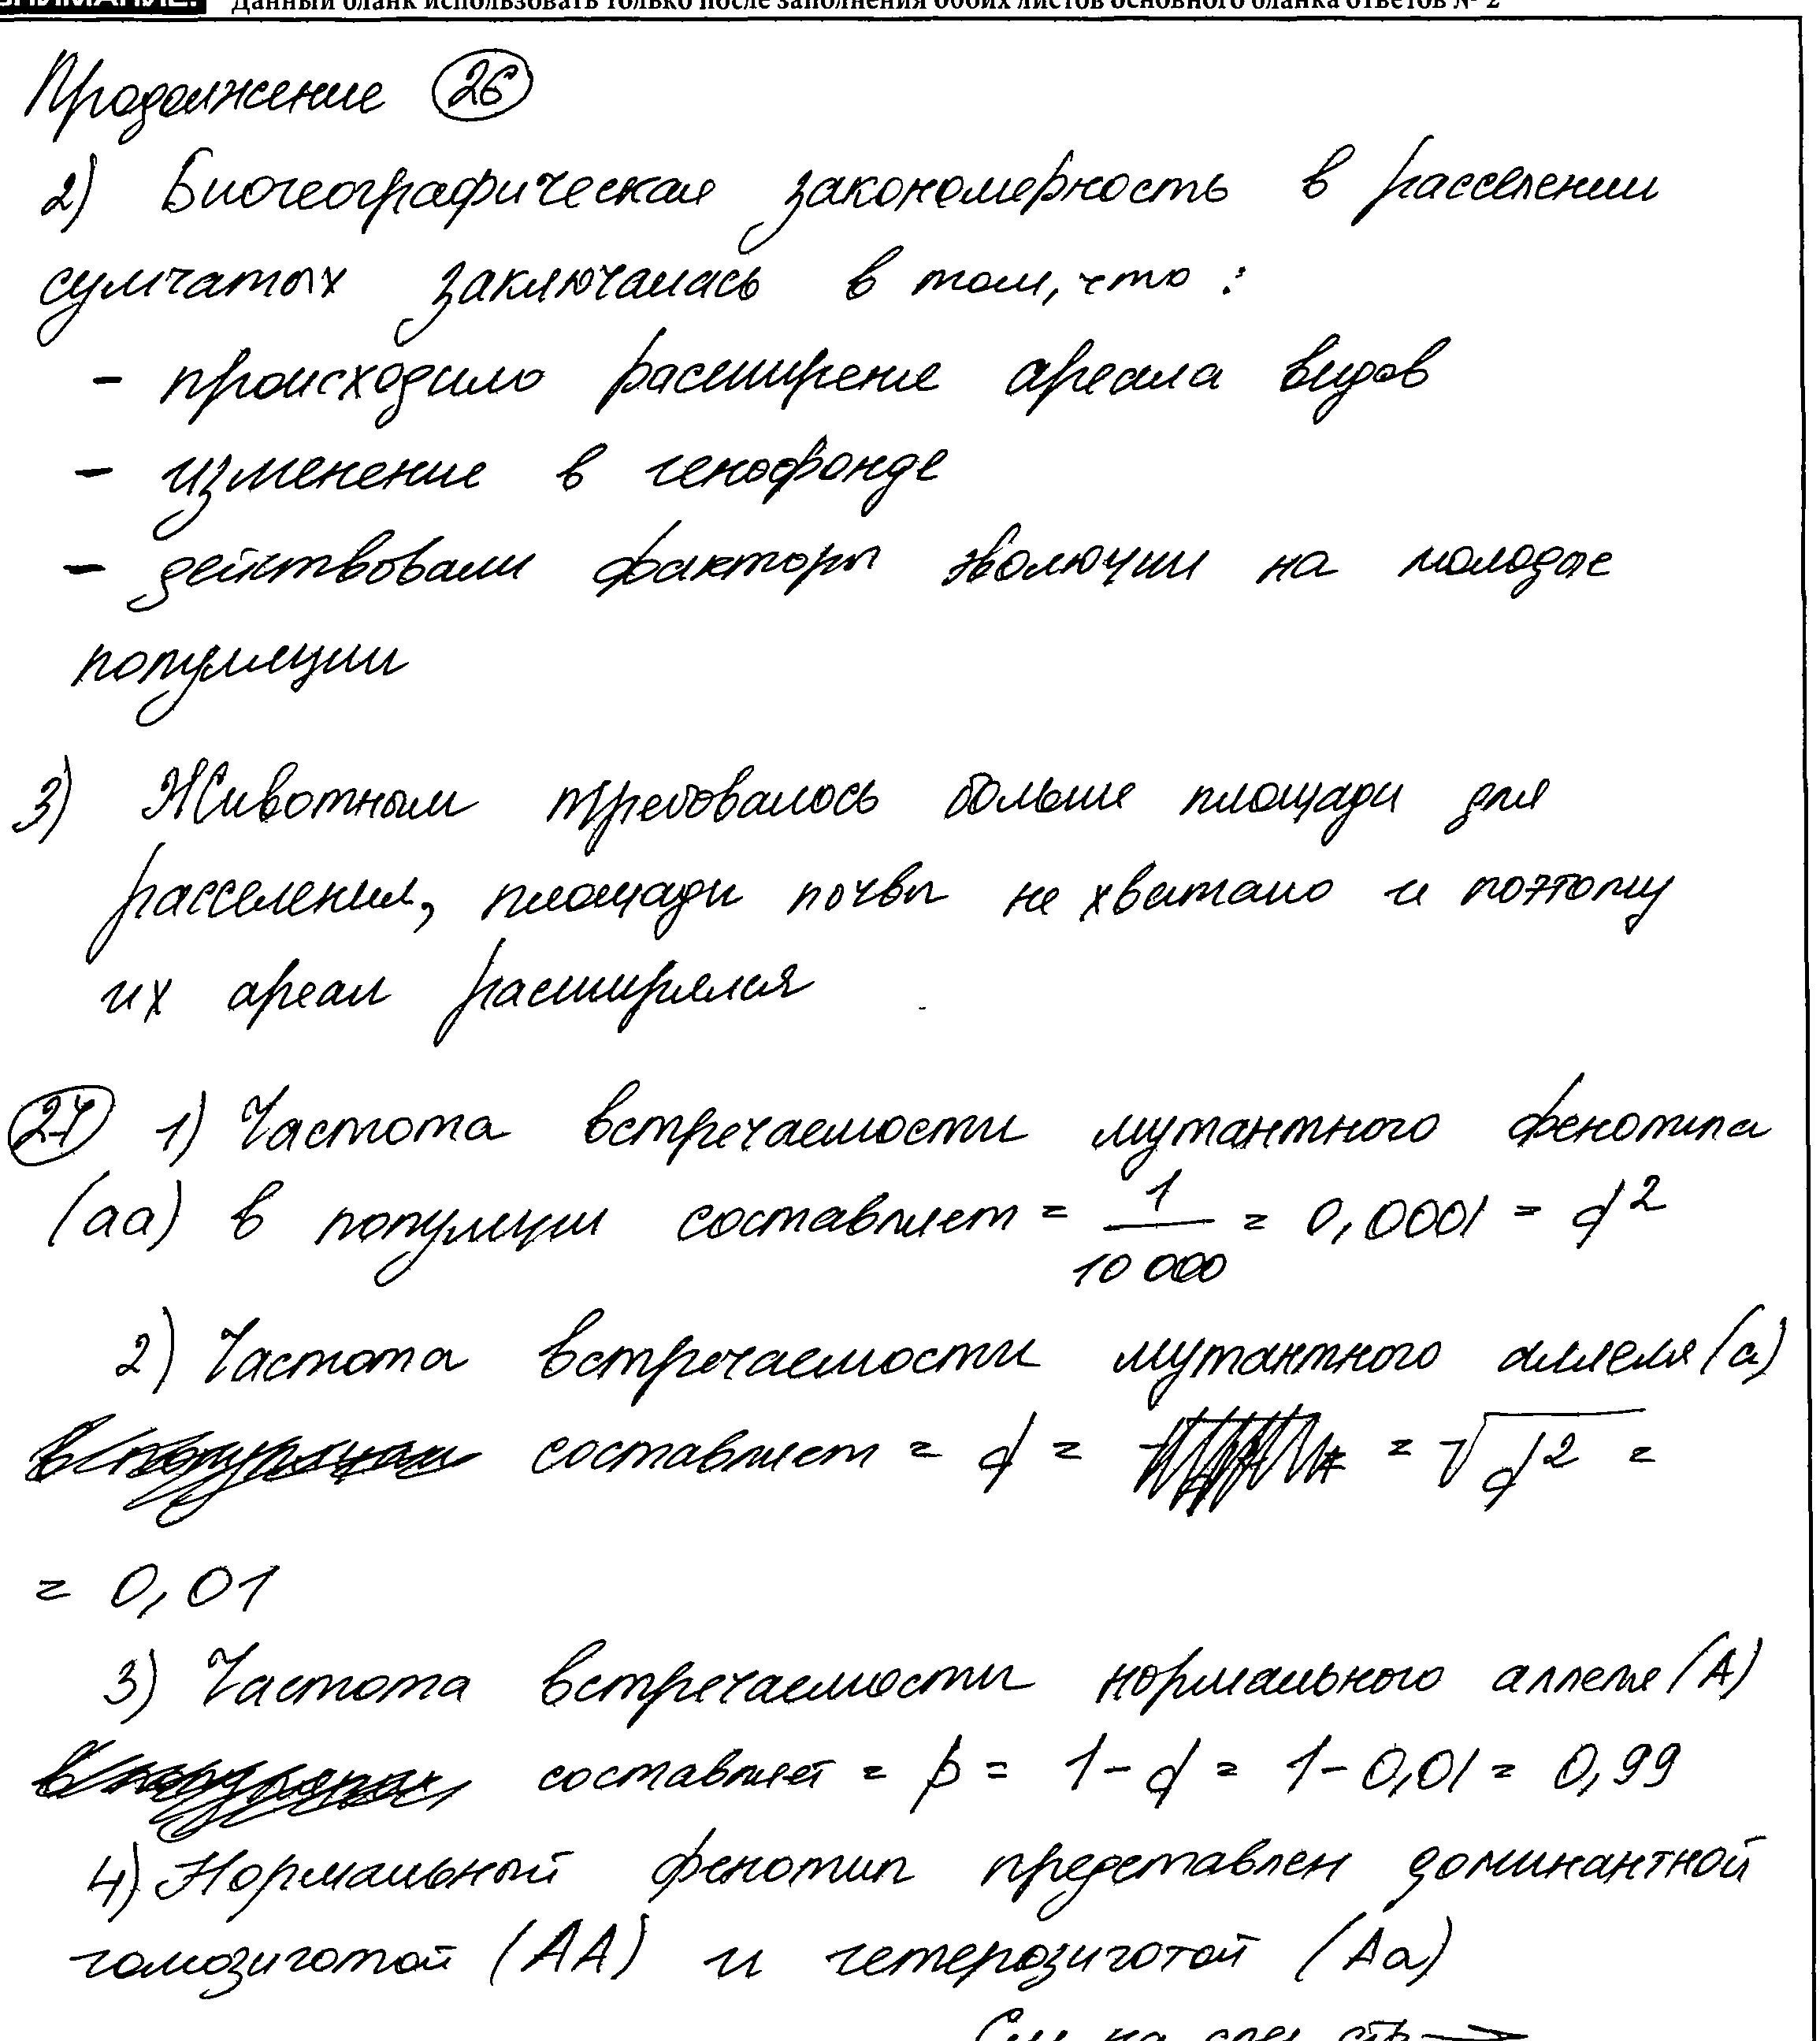 ВНИМАНИЕ! Данный бланк использовать только после заполнения обоих листов основного бланка ответов № 2
Продолжение 26
2) Биогеографическая закономерность в расселении
сумчатых заключалась в том, что :
- происходило расширение ареала видов
- изменение в генофонде
- действовали факторы эволюции на молодые
популяции
3) Животным требовалось больше площади для
расселения, площади почвы не хватало и поэтому
их ареал расширялся
27 1) Частота встречаемости мутантного фенотипа
(аа) в популяции составляет = 1/10 000 = 0,0001 = q²
2) Частота встречаемости мутантного аллеля (а)
составляет = q = = √q² =
= 0,01
3) Частота встречаемости нормального аллеля (А)
составляет = p = 1 - q = 1 - 0,01 = 0,99
4) Нормальный фенотип представлен доминантной
гомозиготой (АА) и гетерозиготой (Аа)
См на след стр →